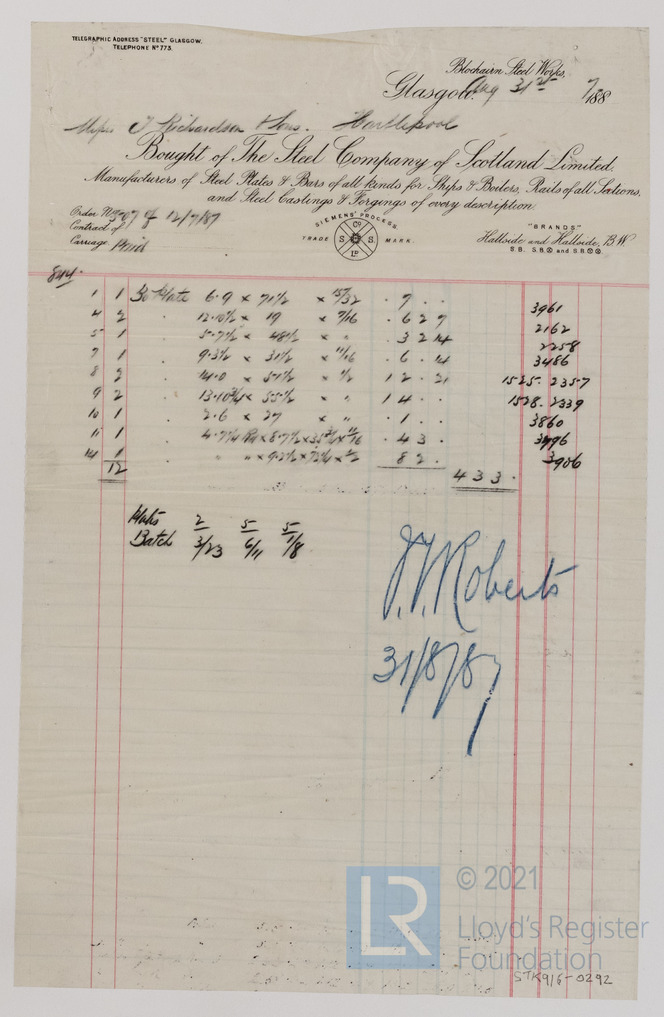 TELEGRAPHIC ADDRESS "STEEL" GLASGOW.
TELEPHONE Nº 773.
Blochairn Steel Works,
Glasgow. Aug 31st 7/188
Messrs T Richardson & Sons. Hartlepool
Bought of The Steel Company of Scotland Limited.
Manufacturers of Steel Plates & Bars of all kinds for Ships & Boilers, Rails of all Sections,
and Steel Castings & Forgings of every description.
Order No 507 of 12/7/87
Contract of
Carriage Paid
SIEMENS' PROCESS.
TRADE MARK.
Co
S S
Ld
"BRANDS"
Hallside and Hallside, B.W
S.B. S.B and S.B
844.
1 1 Bo Plate 6.9 × 71½ × 15/32 . 7 . . 3961
4 2 . 12.10½ × 19 × 7/16 . 6 2 7 2162
5 1 . 5.7½ × 48½ × " . 3 2 14 2258
7 1 . 9.3½ × 31½ × 11/16 . 6 . 14 3486
8 2 . 14.0 × 51½ × ½ 12 . 21 1525. 2357
9 2 . 13.10¾ × 55½ × " 14 . . 1528. 2339
10 1 . 2.6 × 27 × " . 1 . . 3860
11 1 . 4.7¼ × 8.7½ × 11/16 . 4 3 . 3996
14 1 . " × ½ 8 2 . 3906
12
4 3 3 .
Plates 2 5 5
Batch 3/23 6/11 1/8
J.T. Roberts
31/8/87
LR
© 2021
Lloyd's Register
Foundation
STK916-0292